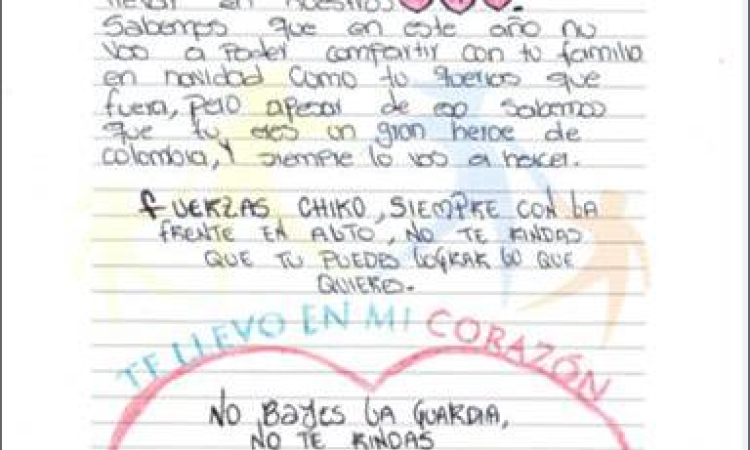 llevar en nuestros
Sabemos que en este año no
vas a Poder compartir con tu familia
en navidad Como tu querias que
fuera, Pero apesar de eso sabemos
que tu eres un gran heroe de
colombia, Y siempre lo vas a hacer.
FUERZAS CHIKO, SIEMPRE CON LA
FRENTE EN ALTO, NO TE RINDAS
QUE TU PUEDES LOGRAR LO QUE
QUIERES.
TE LLEVO EN MI CORAZÓN
NO BAJES LA GUARDIA,
NO TE RINDAS